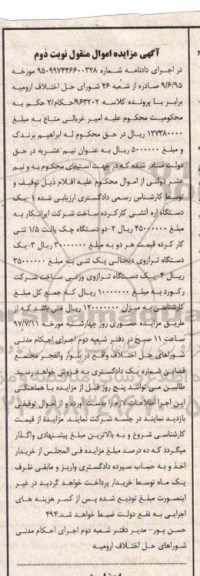 آگهی مزایده اموال منقول نوبت دوم
در اجرای دادنامه شماره ۹۵۰۹۹۷۴۴۶۶۰۰۳۲۸ مورخه
۹/۶/۹۵ صادره از شعبه ۲۶ شورای حل اختلاف ارومیه
برابر با پرونده کلاسه ۹۶۳۲۰۲ح‌کام/۲ حکم به
محکومیت محکوم علیه امیر غریالی متاع به مبلغ
۱۲۷۳۸۰۰۰۰ ریال در حق محکوم له ابراهیم برندک
و مبلغ ۵۰۰۰۰۰۰ ریال به عنوان نیم عشریه در حق
دولت صادر شده که در جهت استیفای محکوم به و نیم
عشر دولتی از اموال محکوم علیه اقلام ذیل توقیف و
توسط کارشناس رسمی دادگستری ارزیابی شده ۱-یک
دستگاه اره آتشی کارکرده ساخت شرکت ایرانکار به
مبلغ ۴۵۰۰۰۰۰۰ ریال ۲-دو دستگاه چک پالت ۱/۵ تنی
کارکرده قیمت هر دو به مبلغ ۳۰۰۰۰۰۰۰ ریال ۳-یک
دستگاه ترازوی دیجیتالی یک تنی به مبلغ ۳۵۰۰۰۰۰۰
ریال ۴-یک دستگاه ترازوی وزنی ساخت شرکت
رکورد به مبلغ ۱۰۰۰۰۰۰۰ ریال که جمع کل مبلغ
کارشناسی به میزان ۱۲۰۰۰۰۰۰۰ ریال می باشد که از
طریق مزایده حضوری روز چهارشنبه مورخه ۹۷/۷/۱۱
ساعت ۱۱ صبح در دفتر شعبه دوم اجرای احکام مدنی
شوراهای حل اختلاف واقع در بلوار والفجر مجتمع
قضایی شماره یک دادگستری به فروش خواهد رسید
طالبین می توانند پنج روز قبل از مزایده با هماهنگی
این اجرا اطلاعات لازم را بدست آورده و از اموال توقیفی
بازدید نمایند در جلسه شرکت نمایند. مزایده از قیمت
کارشناسی شروع و به بالاترین مبلغ پیشنهادی واگذار
میگردد که ده درصد مبلغ مزایده فی المجلس از خریدار
اخذ و به حساب سپرده دادگستری واریز و مابقی ظرف
یک ماه توسط خریدار پرداخت خواهد گردید در غیر
اینصورت مبلغ تودیع شده پس از کسر هزینه های
اجرایی به نفع دولت ضبط خواهد شد.۴۹۴
حسن پور - مدیر دفتر شعبه دوم اجرای احکام مدنی
شوراهای حل اختلاف ارومیه